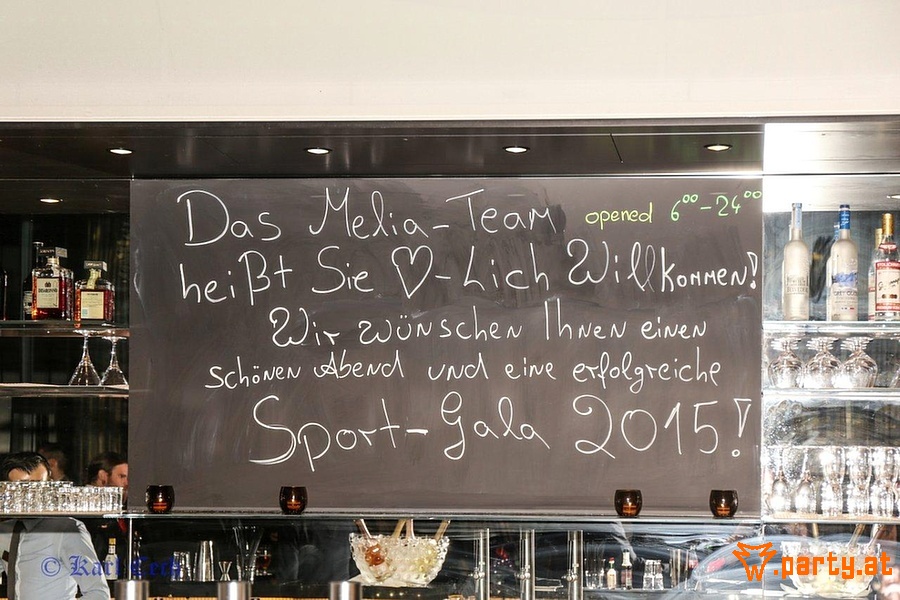 Das Melia-Team opened 6⁰⁰-24⁰⁰
heißt Sie ♡-Lich Willkommen!
Wir wünschen Ihnen einen
schönen Abend und eine erfolgreiche
Sport-Gala 2015!
© Karl
.party.at